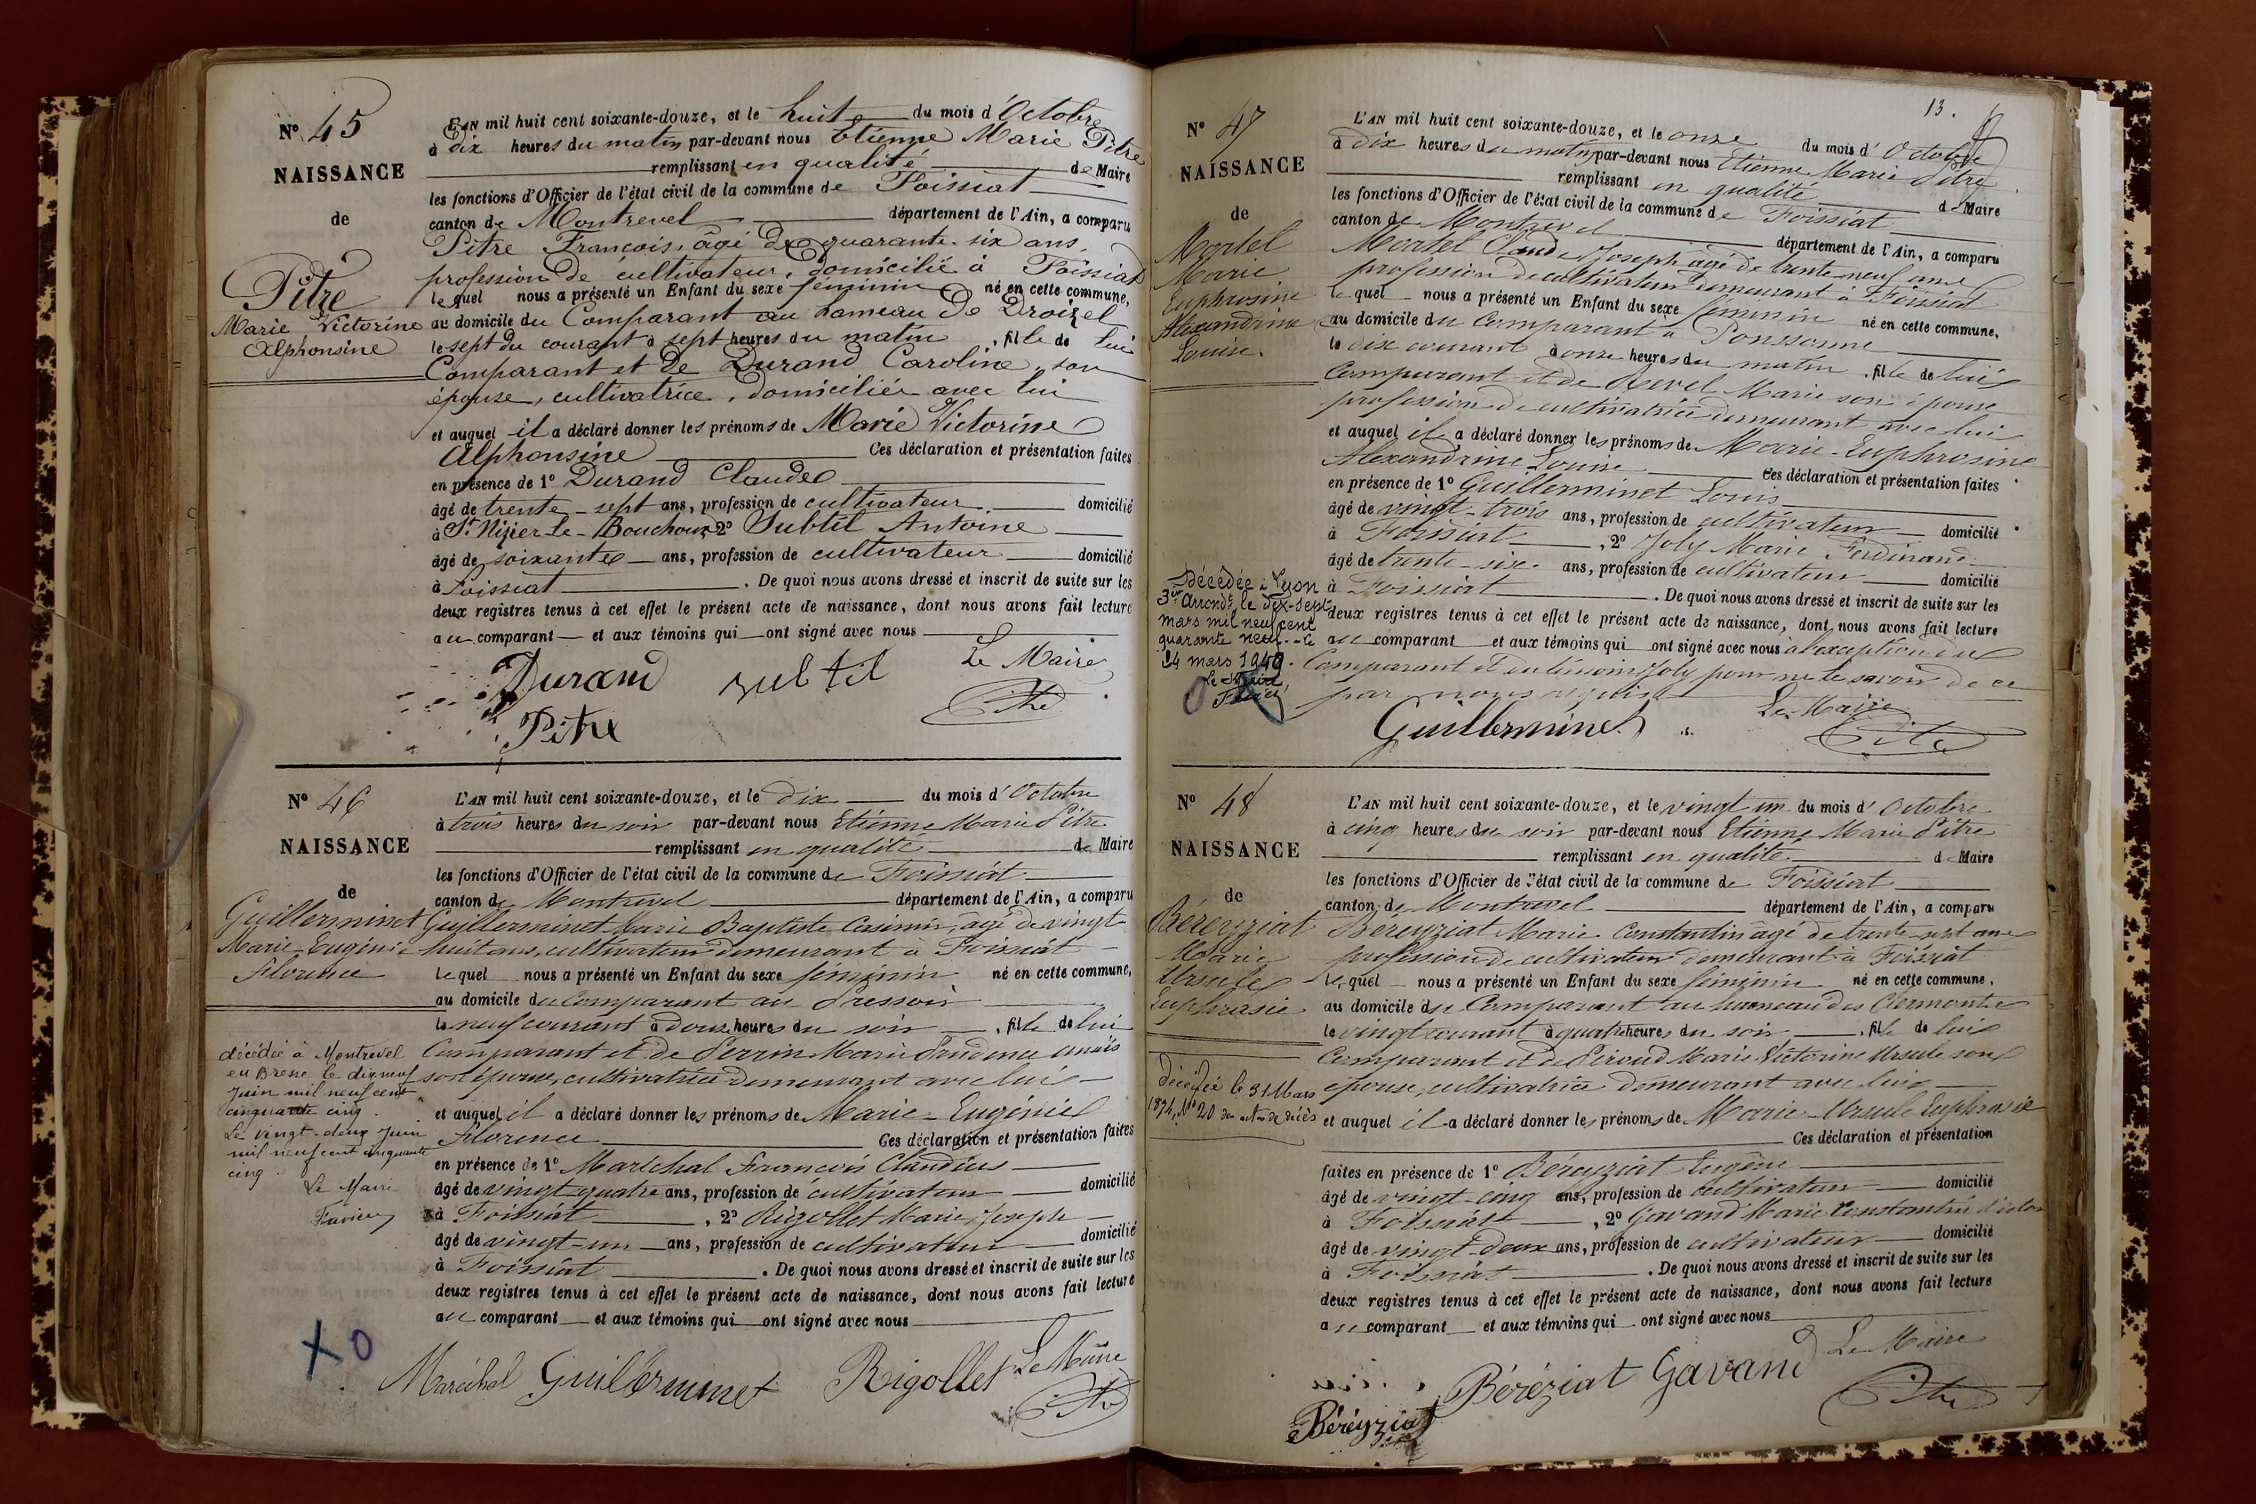 N° 45
NAISSANCE
de
Pitre
Marie Victorine
Alphonsine
L'AN mil huit cent soixante-douze, et le huit du mois d'Octobre
à dix heures du matin par-devant nous Etienne Marie Pitre
remplissant en qualité de Maire
les fonctions d'Officier de l'état civil de la commune de Foissiat
canton de Montrevel département de l'Ain, a comparu
Pitre François, âgé de quarante-six ans,
profession de cultivateur, domicilié à Foissiat
lequel nous a présenté un Enfant du sexe féminin né en cette commune,
au domicile du Comparant au hameau de Droizel
le sept du courant à sept heures du matin, fille de lui
Comparant et de Durand Caroline son
épouse, cultivatrice, domiciliée avec lui
et auquel il a déclaré donner les prénoms de Marie Victorine
Alphonsine Ces déclaration et présentation faites
en présence de 1° Durand Claude
âgé de trente-sept ans, profession de cultivateur domicilié
à St Nizier-le-Bouchoux 2° Subtil Antoine
âgé de soixante ans, profession de cultivateur domicilié
à Foissiat. De quoi nous avons dressé et inscrit de suite sur les
deux registres tenus à cet effet le présent acte de naissance, dont nous avons fait lecture
au comparant et aux témoins qui ont signé avec nous
Durand subtil Le Maire
Pitre Pitre
N° 46
NAISSANCE
de
Guillerminet
Marie-Eugénie
Florence
décédée à Montrevel
en Bresse le dix neuf
Juin mil neuf cent
cinquante cinq.
Le vingt-deux Juin
mil neuf cent cinquante
cinq.
Le Maire
L'AN mil huit cent soixante-douze, et le dix du mois d'Octobre
à trois heures du soir par-devant nous Etienne Marie Pitre
remplissant en qualité de Maire
les fonctions d'Officier de l'état civil de la commune de Foissiat
canton de Montrevel département de l'Ain, a comparu
Guillerminet Marie Baptiste Casimir, âgé de vingt-
huit ans, cultivateur demeurant à Foissiat
lequel nous a présenté un Enfant du sexe féminin né en cette commune,
au domicile du Comparant au Pressoir
le neuf courant à douze heures du soir, fille de lui
Comparant et de Perrin Marie Prudence Anaïs
son épouse, cultivatrice demeurant avec lui
et auquel il a déclaré donner les prénoms de Marie-Eugénie
Florence Ces déclaration et présentation faites
en présence de 1° Maréchal François Claudius
âgé de vingt-quatre ans, profession de cultivateur domicilié
à Foissiat, 2° Rigollet Marie Joseph
âgé de vingt-un ans, profession de cultivateur domicilié
à Foissiat. De quoi nous avons dressé et inscrit de suite sur les
deux registres tenus à cet effet le présent acte de naissance, dont nous avons fait lecture
au comparant et aux témoins qui ont signé avec nous
X O
Maréchal Guillerminet Rigollet Le Maire
Pitre
13.
N° 47
NAISSANCE
de
Mortel
Marie
Euphrosine
Alexandrine
Louise.
Décédée à Lyon
3e Arrondt le dix-sept
mars mil neuf cent
quarante neuf. - le
24 mars 1949.
Le Maire,
L'AN mil huit cent soixante-douze, et le onze du mois d'Octobre
à dix heures du matin par-devant nous Etienne Marie Pitre
remplissant en qualité de Maire
les fonctions d'Officier de l'état civil de la commune de Foissiat
canton de Montrevel département de l'Ain, a comparu
Mortel Claude Joseph âgé de trente-neuf ans
profession de cultivateur demeurant à Foissiat
lequel nous a présenté un Enfant du sexe féminin né en cette commune,
au domicile du Comparant à Ponssonne
le dix courant à onze heures du matin, fille de lui
Comparant et de Revel Marie son épouse
profession de cultivatrice demeurant avec lui
et auquel il a déclaré donner les prénoms de Marie-Euphrosine
Alexandrine Louise Ces déclaration et présentation faites
en présence de 1° Guillerminet Louis
âgé de vingt-trois ans, profession de cultivateur domicilié
à Foissiat, 2° Joly Marie Ferdinand
âgé de trente-six ans, profession de cultivateur domicilié
à Foissiat. De quoi nous avons dressé et inscrit de suite sur les
deux registres tenus à cet effet le présent acte de naissance, dont nous avons fait lecture
au comparant et aux témoins qui ont signé avec nous à l'exception du
Comparant et du témoin Joly pour ne le savoir de ce
par nous requis
Guillerminet Le Maire
Pitre
N° 48
NAISSANCE
de
Béreyziat
Marie
Ursule
Euphrasie
Décédée le 31 Mars
1874, N° 20 du Re de décès
L'AN mil huit cent soixante-douze, et le vingt un du mois d'Octobre
à cinq heures du soir par-devant nous Etienne Marie Pitre
remplissant en qualité de Maire
les fonctions d'Officier de l'état civil de la commune de Foissiat
canton de Montrevel département de l'Ain, a comparu
Béreyziat Marie Constantin âgé de trente-sept ans
profession de cultivateur demeurant à Foissiat
lequel nous a présenté un Enfant du sexe féminin né en cette commune,
au domicile du Comparant au hameau des Clermonts
le vingt courant à quatre heures du soir, fille de lui
Comparant et de Piroud Marie Victorine Ursule son
épouse, cultivatrice demeurant avec lui
et auquel il a déclaré donner les prénoms de Marie-Ursule Euphrasie
Ces déclaration et présentation
faites en présence de 1° Béreyziat Eugène
âgé de vingt-cinq ans, profession de cultivateur domicilié
à Foissiat, 2° Gavand Marie Constantin Victor
âgé de vingt-deux ans, profession de cultivateur domicilié
à Foissiat. De quoi nous avons dressé et inscrit de suite sur les
deux registres tenus à cet effet le présent acte de naissance, dont nous avons fait lecture
au comparant et aux témoins qui ont signé avec nous
Béréziat Gavand Le Maire
Béréyziat Pitre